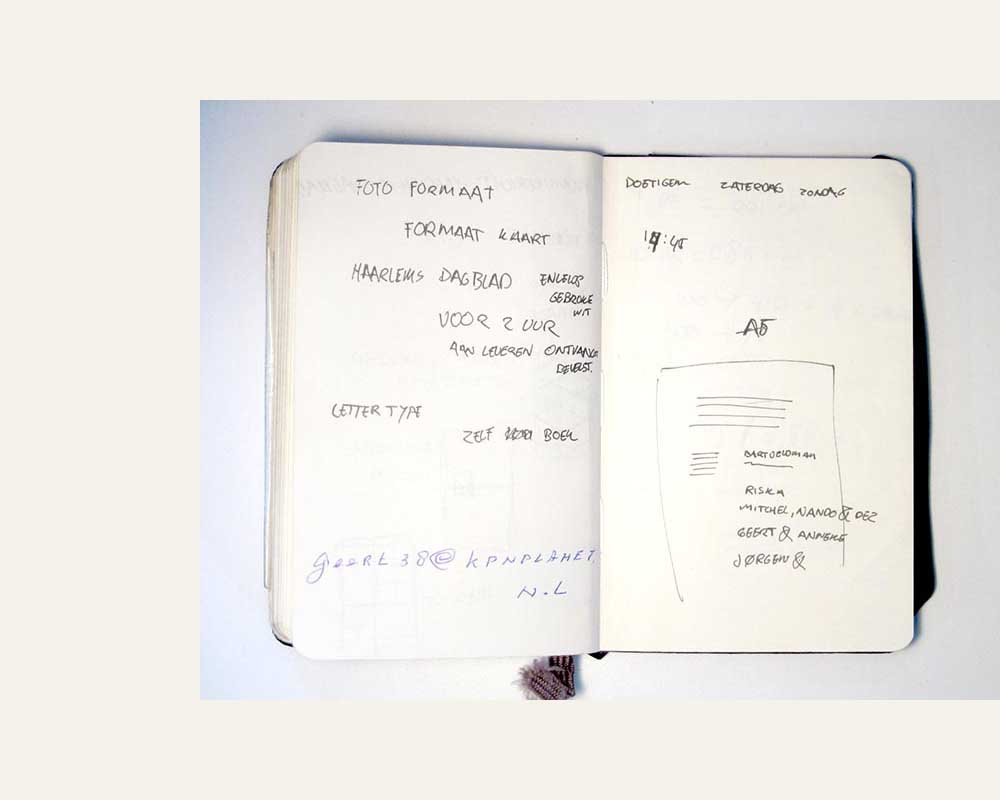 FOTO FORMAAT
FORMAAT KAART
HAARLEMS DAGBLAD
ENVELOP
GEBROKE
WIT
VOOR 2 UUR
AAN LEVEREN ONTVANGST
LETTER TYPE
ZELF BOEK
geert38@KPNPLANET.
N.L
DOETIGEM ZATERDAG ZONDAG
:45
A5
RISKA
MITCHEL, NANDO & DEZ
GEERT & ANNEKE
JØRGEN &